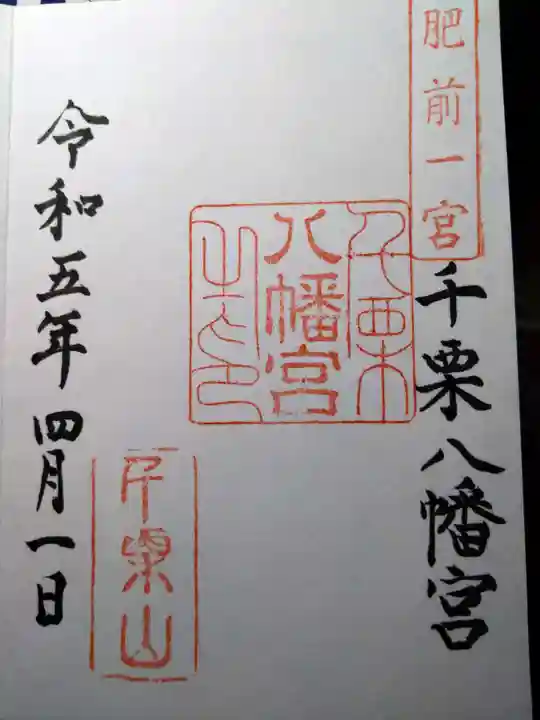 肥前一宮
千栗八幡宮
千栗
八幡宮
之印
千栗山
令和五年四月一日